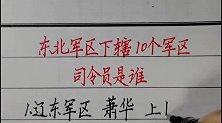 东北军区下辖10个军区
司令员是谁
1.辽东军区 萧华 上